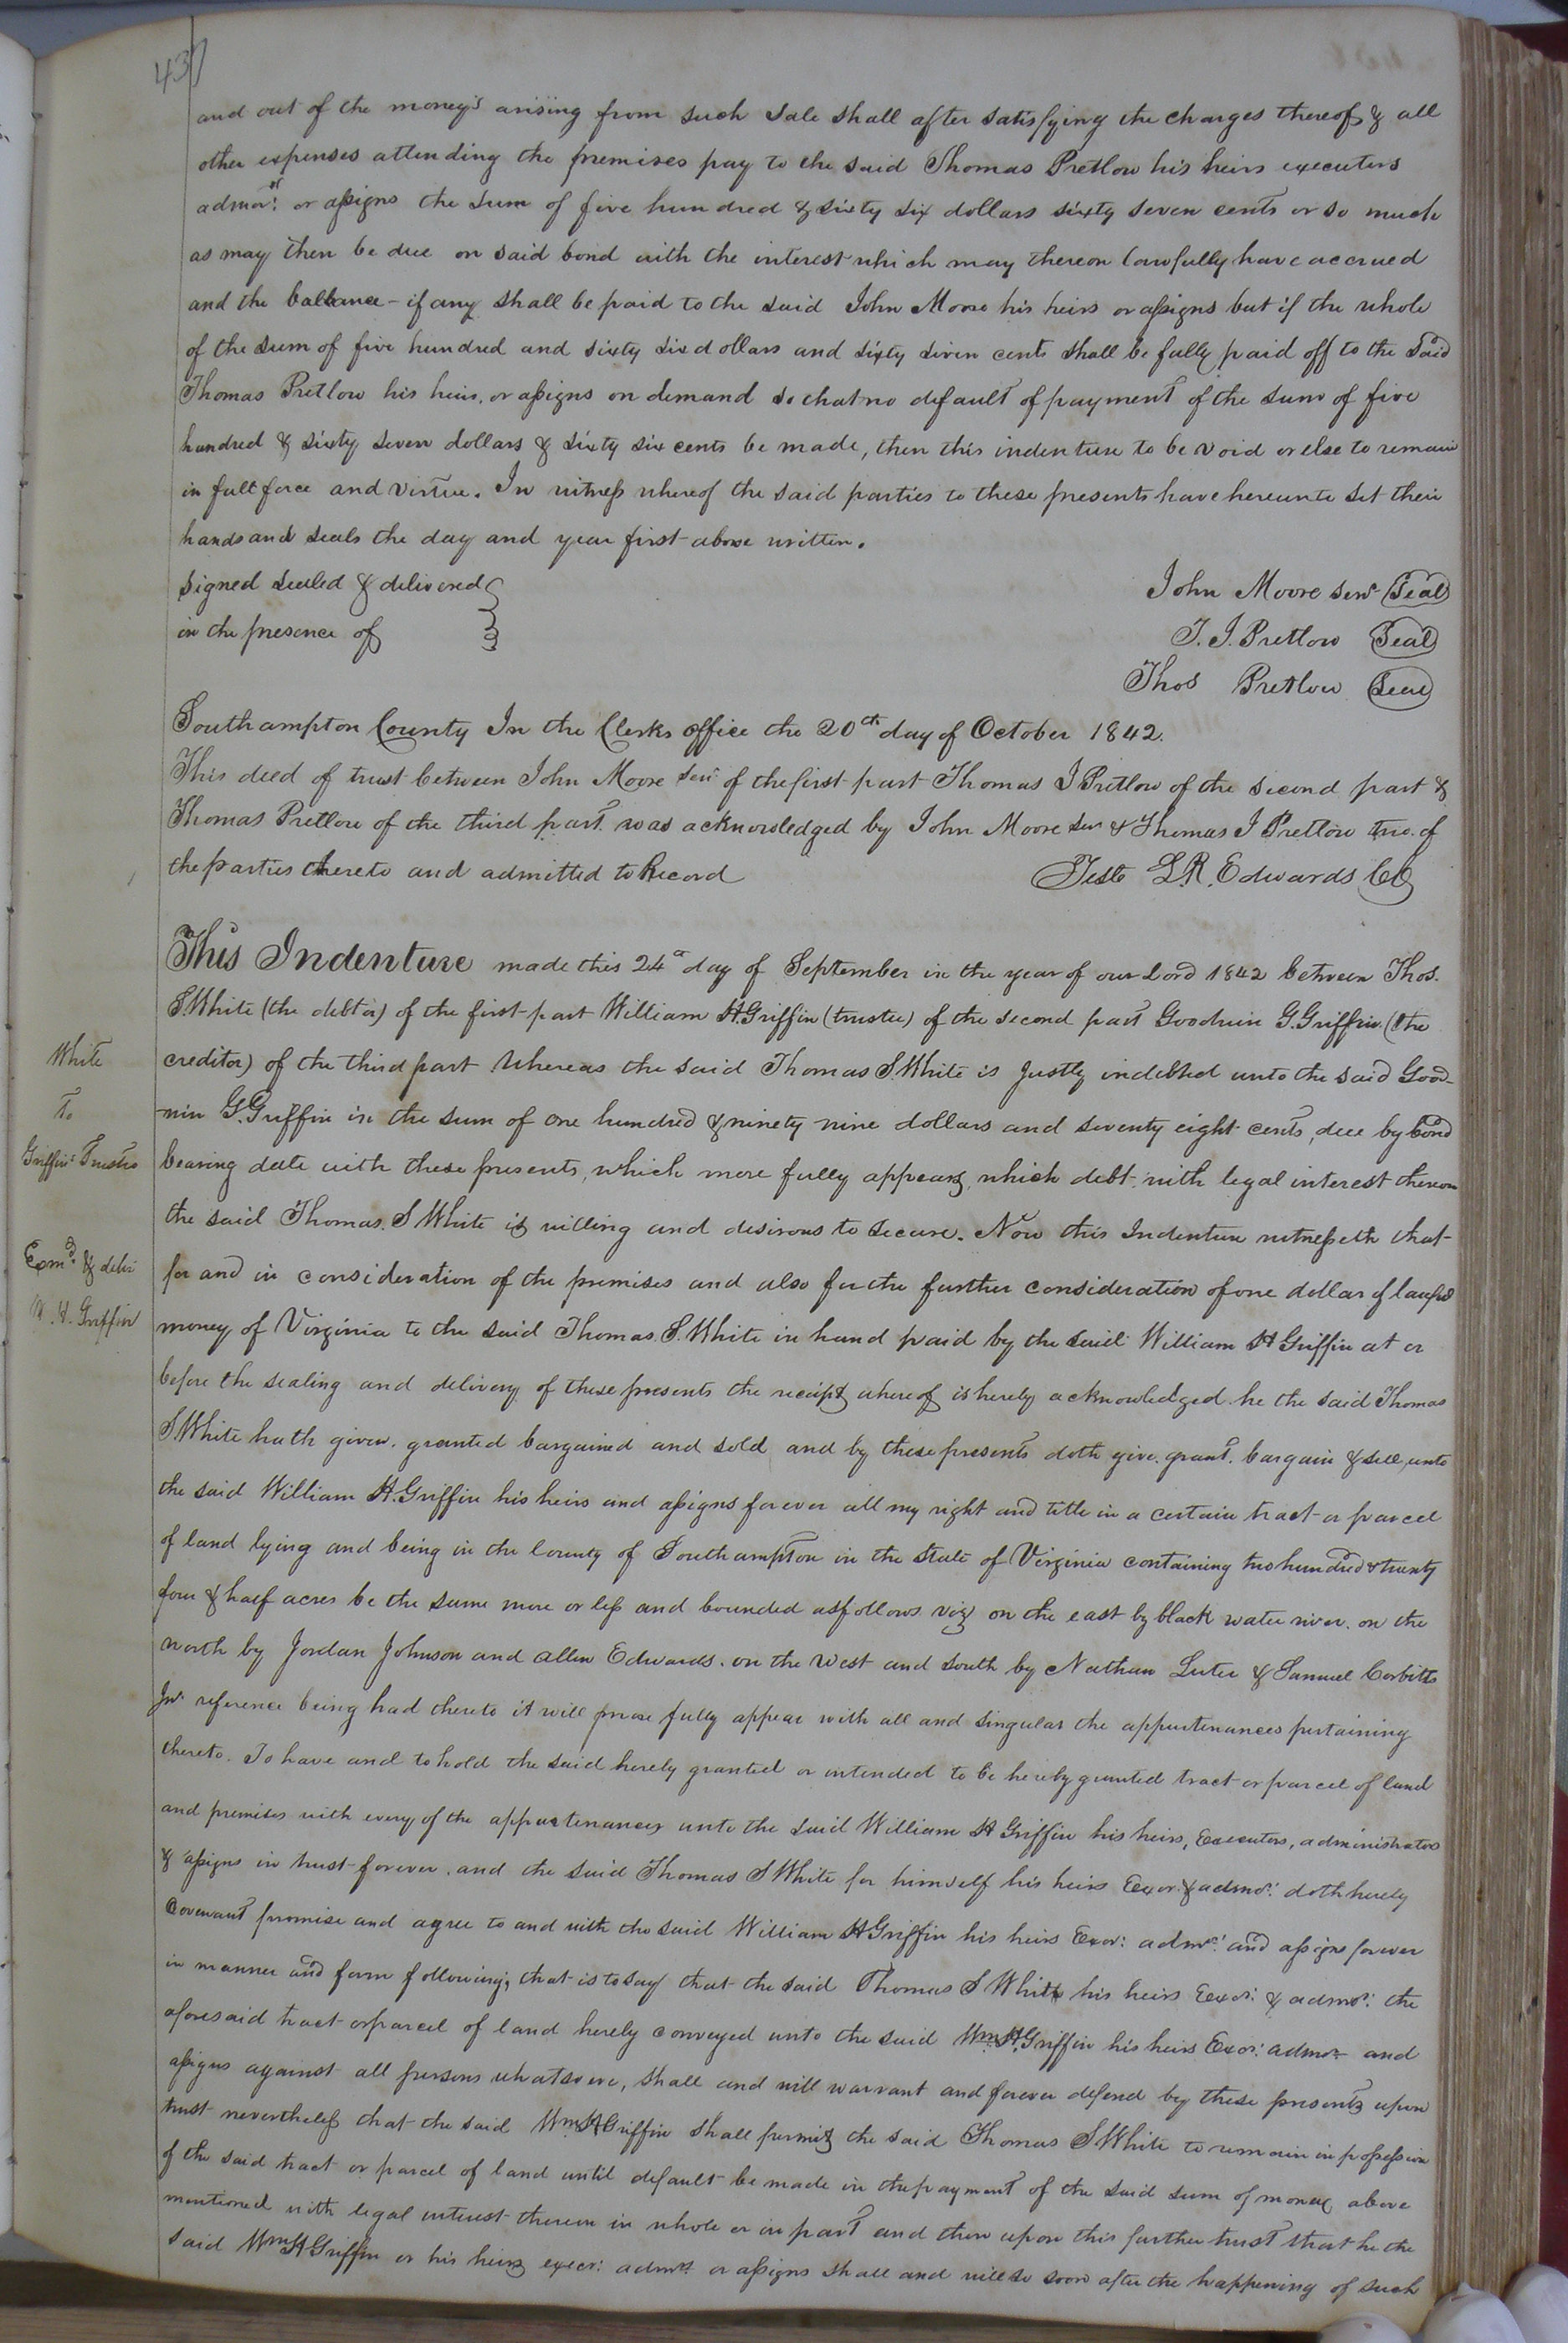 437
and out of the money's arising from such sale shall after satisfying the charges thereof & all
other expenses attending the premises pay to the said Thomas Pretlow his heirs executors
admors or assigns the sum of five hundred & sixty six dollars sixty seven cents or so much
as may then be due on said bond with the interest which may thereon lawfully have accrued
and the ballance - if any shall be paid to the said John Moore his heirs or assigns but if the whole
of the sum of five hundred and sixty six dollars and sixty seven cents shall be fully paid off to the said
Thomas Pretlow his heirs, or assigns on demand so that no default of payment of the sum of five
hundred & sixty seven dollars & sixty six cents be made, then this indenture to be void or else to remain
in full force and virtue. In witness whereof the said parties to these presents have hereunto set their
hands and seals the day and year first above written.
signed sealed & delivered
in the presence of
John Moore senr Seal
T. J. Pretlow Seal
Thos Pretlow Seal
Southampton County In the Clerks office the 20th day of October 1842.
This deed of trust between John Moore senr of the first part Thomas J Pretlow of the second part &
Thomas Pretlow of the third part was acknowledged by John Moore senr & Thomas J Pretlow two of
the parties thereto and admitted to Record Teste L. R. Edwards CC
This Indenture made this 24th day of September in the year of our Lord 1842 between Thos.
S. White (the debtor) of the first part William H. Griffin (trustee) of the second part Goodwin G. Griffin (the
creditor) of the third part Whereas the said Thomas S. White is Justly indebted unto the said Good-
-win G. Griffin in the sum of one hundred & ninety nine dollars and seventy eight cents, due by bond
bearing date with these presents, which more fully appears, which debt with legal interest thereon
the said Thomas. S White is willing and desirous to secure. Now this Indenture witnesseth that
for and in consideration of the premises and also for the further consideration of one dollar of lawful
money of Virginia to the said Thomas. S. White in hand paid by the said William H Griffin at or
before the sealing and delivery of these presents the receipt whereof is hereby acknowledged he the said Thomas
S. White hath given. granted bargained and sold and by these presents doth give. grant. bargain & sell, unto
the said William H. Griffin his heirs and assigns forever all my right and title in a certain tract or parcel
of land lying and being in the County of Southampton in the State of Virginia containing two hundred & twenty
four & half acres be the same more or less and bounded as follows viz on the east by black water river. on the
north by Jordan Johnson and Allen Edwards. on the west and south by Nathan Luter & Samuel Corbitts
Jnr reference being had thereto it will more fully appear with all and singular the appurtenances pertaining
thereto. To have and to hold the said hereby granted or intended to be hereby granted tract or parcel of land
and premises with every of the appurtenances unto the said William H Griffin his heirs, Executors, administrators
& assigns in trust forever. and the said Thomas S White for himself his heirs Exor. & admor: doth hereby
Covenant promise and agree to and with the said William H Griffin his heirs Exor: admor: and assigns forever
in manner and form following, that is to say that the said Thomas S White his heirs Exor: & admor: the
aforesaid tract or parcel of land hereby conveyed unto the said Wm. H. Griffin his heirs Exor: admor and
assigns against all persons whatsoever, shall and will warrant and forever defend by these presents upon
trust nevertheless that the said Wm. H Griffin shall permit the said Thomas S White to remain in possession
of the said tract or parcel of land until default be made in the payment of the said sum of money above
mentioned with legal interest thereon in whole or in part and then upon this further trust that he the
said Wm H Griffin or his heirs exec: admor or assigns shall and will so soon after the happening of such
White
To
Griffins Trustee
Exmd. & deliv
W. H. Griffin